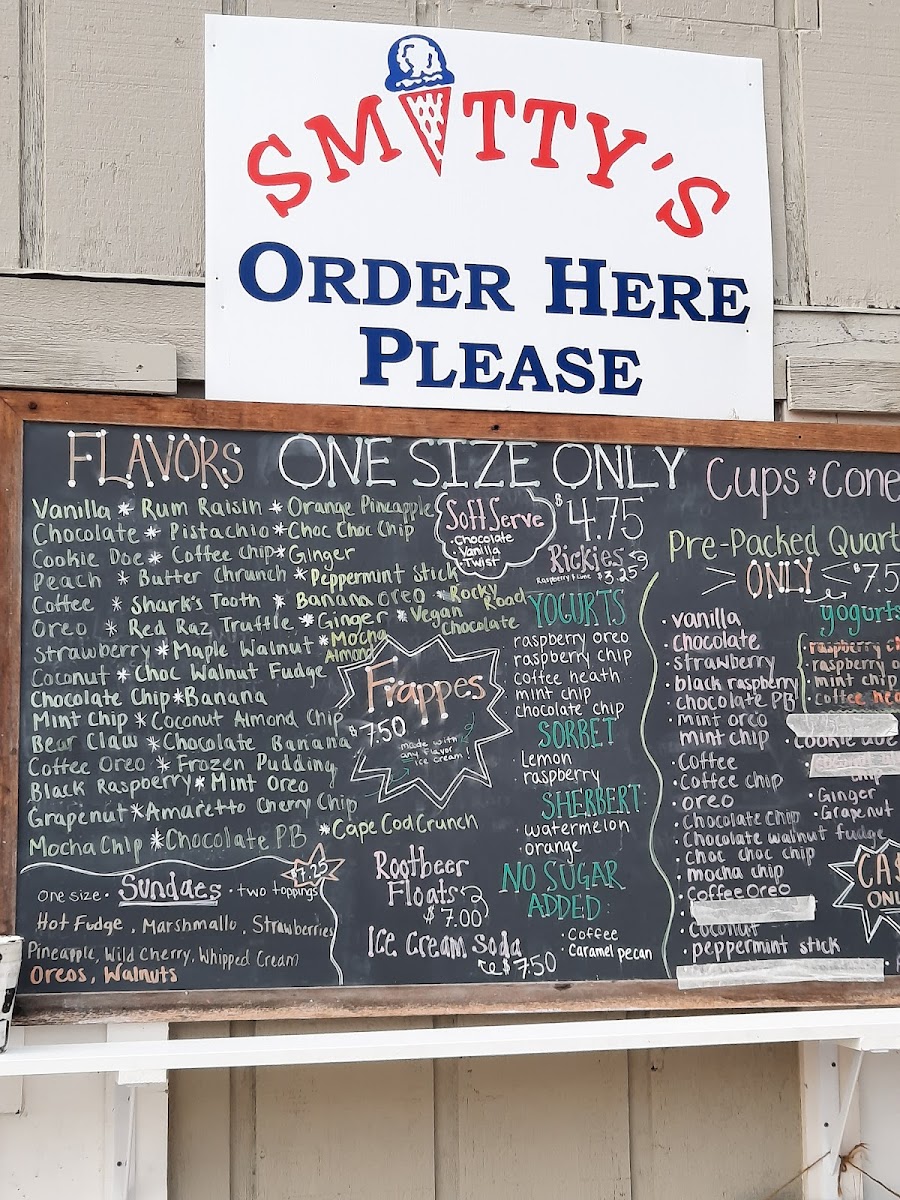 SMITTY'S
ORDER HERE
PLEASE
FLAVORS ONE SIZE ONLY
Vanilla * Rum Raisin * Orange Pineapple
Chocolate * Pistachio * Choc Choc Chip
Cookie Doe * Coffee Chip * Ginger
Peach * Butter Chrunch * Peppermint Stick
Coffee * Shark's Tooth * Banana Oreo * Rocky Road
Oreo * Red Raz Truffle * Ginger * Vegan Chocolate
Strawberry * Maple Walnut * Mocha Almond
Coconut * Choc Walnut Fudge
Chocolate Chip * Banana
Mint Chip * Coconut Almond Chip
Bear Claw * Chocolate Banana
Coffee Oreo * Frozen Pudding
Black Raspberry * Mint Oreo
Grapenut * Amaretto Cherry Chip
Mocha Chip * Chocolate PB * Cape Cod Crunch
Soft Serve
· Chocolate
· Vanilla
· Twist
$4.75
Rickies
Raspberry & Lime $3.25
Frappes
$7.50
made with
any flavor
ice cream!
YOGURTS
raspberry oreo
raspberry chip
coffee heath
mint chip
chocolate chip
SORBET
Lemon
raspberry
SHERBERT
· watermelon
· orange
NO SUGAR
ADDED:
· Coffee
· Caramel pecan
Rootbeer
Floats
$7.00
Ice Cream Soda
$7.50
$7.25
One size · Sundaes · Two toppings
Hot Fudge, Marshmallo, Strawberries
Pineapple, Wild Cherry, Whipped Cream
Oreos, Walnuts
Cups & Cone
Pre-Packed Quart
ONLY $7.5
· vanilla
· chocolate
· strawberry
· black raspberry
· chocolate PB
· mint oreo
· mint chip
· coffee
· coffee chip
· oreo
· chocolate chip
· Chocolate walnut fudge
· choc choc chip
· mocha chip
· Coffee Oreo
· Coconut
· peppermint stick
yogurts
raspberry
raspberry
mint chip
coffee hea
· cookie doe
chip
· Ginger
· Grapenut
CA$
ONL